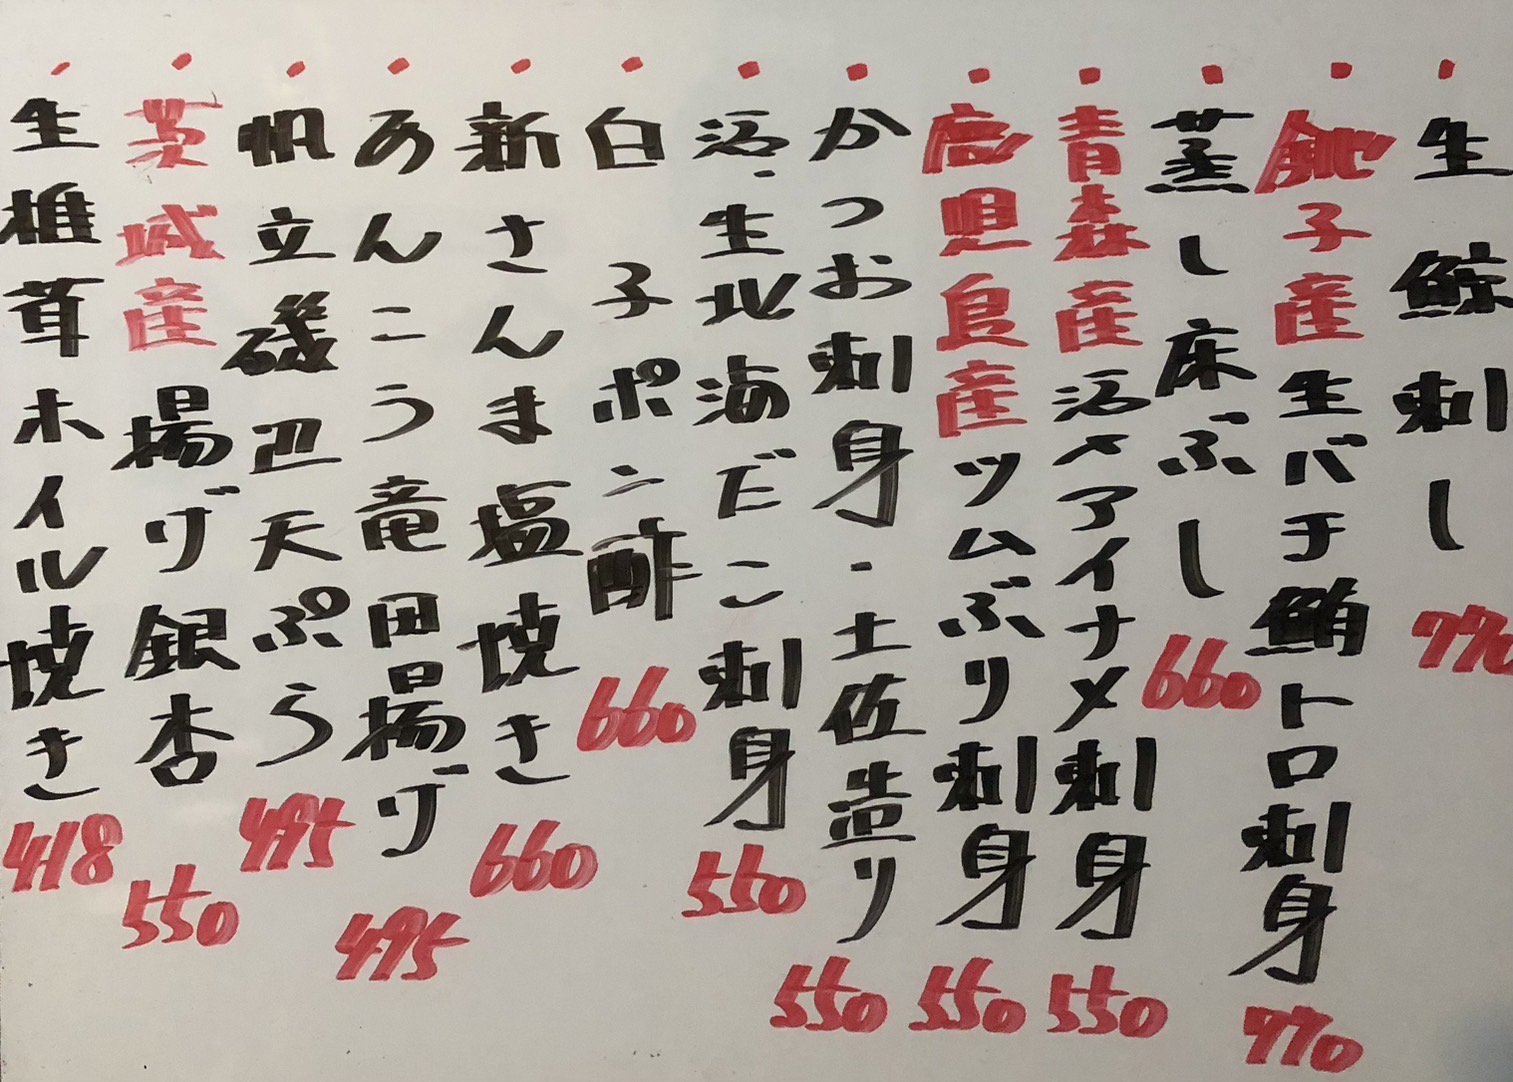 ・生鯨刺し 770
・銚子産生バチ鮪トロ刺身 770
・蒸し床ぶし 660
・青森産活〆アイナメ刺身 550
・鹿児島産ツムぶり刺身 550
・かつお刺身・土佐造り 550
・活・生北海だこ刺身 550
・白子ポン酢 660
・新さんま塩焼き 660
・あんこう竜田揚げ 495
・帆立磯辺天ぷら 495
・茨城産揚げ銀杏 550
・生椎茸ホイル焼き 418